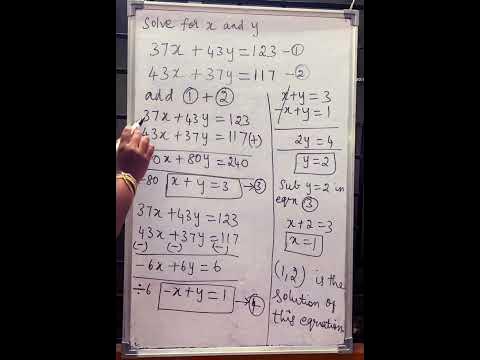 Solve for x and y
37x + 43y = 123 - ①
43x + 37y = 117 - ②
add ① + ②
37x + 43y = 123
43x + 37y = 117 (+)
0x + 80y = 240
÷80 x + y = 3 → ③
37x + 43y = 123
43x + 37y = 117
(-) (-) (-)
-6x + 6y = 6
÷6 -x + y = 1 → ④
x + y = 3
-x + y = 1
2y = 4
y = 2
Sub y = 2 in
eqn ③
x + 2 = 3
x = 1
(1, 2) is the
solution of
this equation